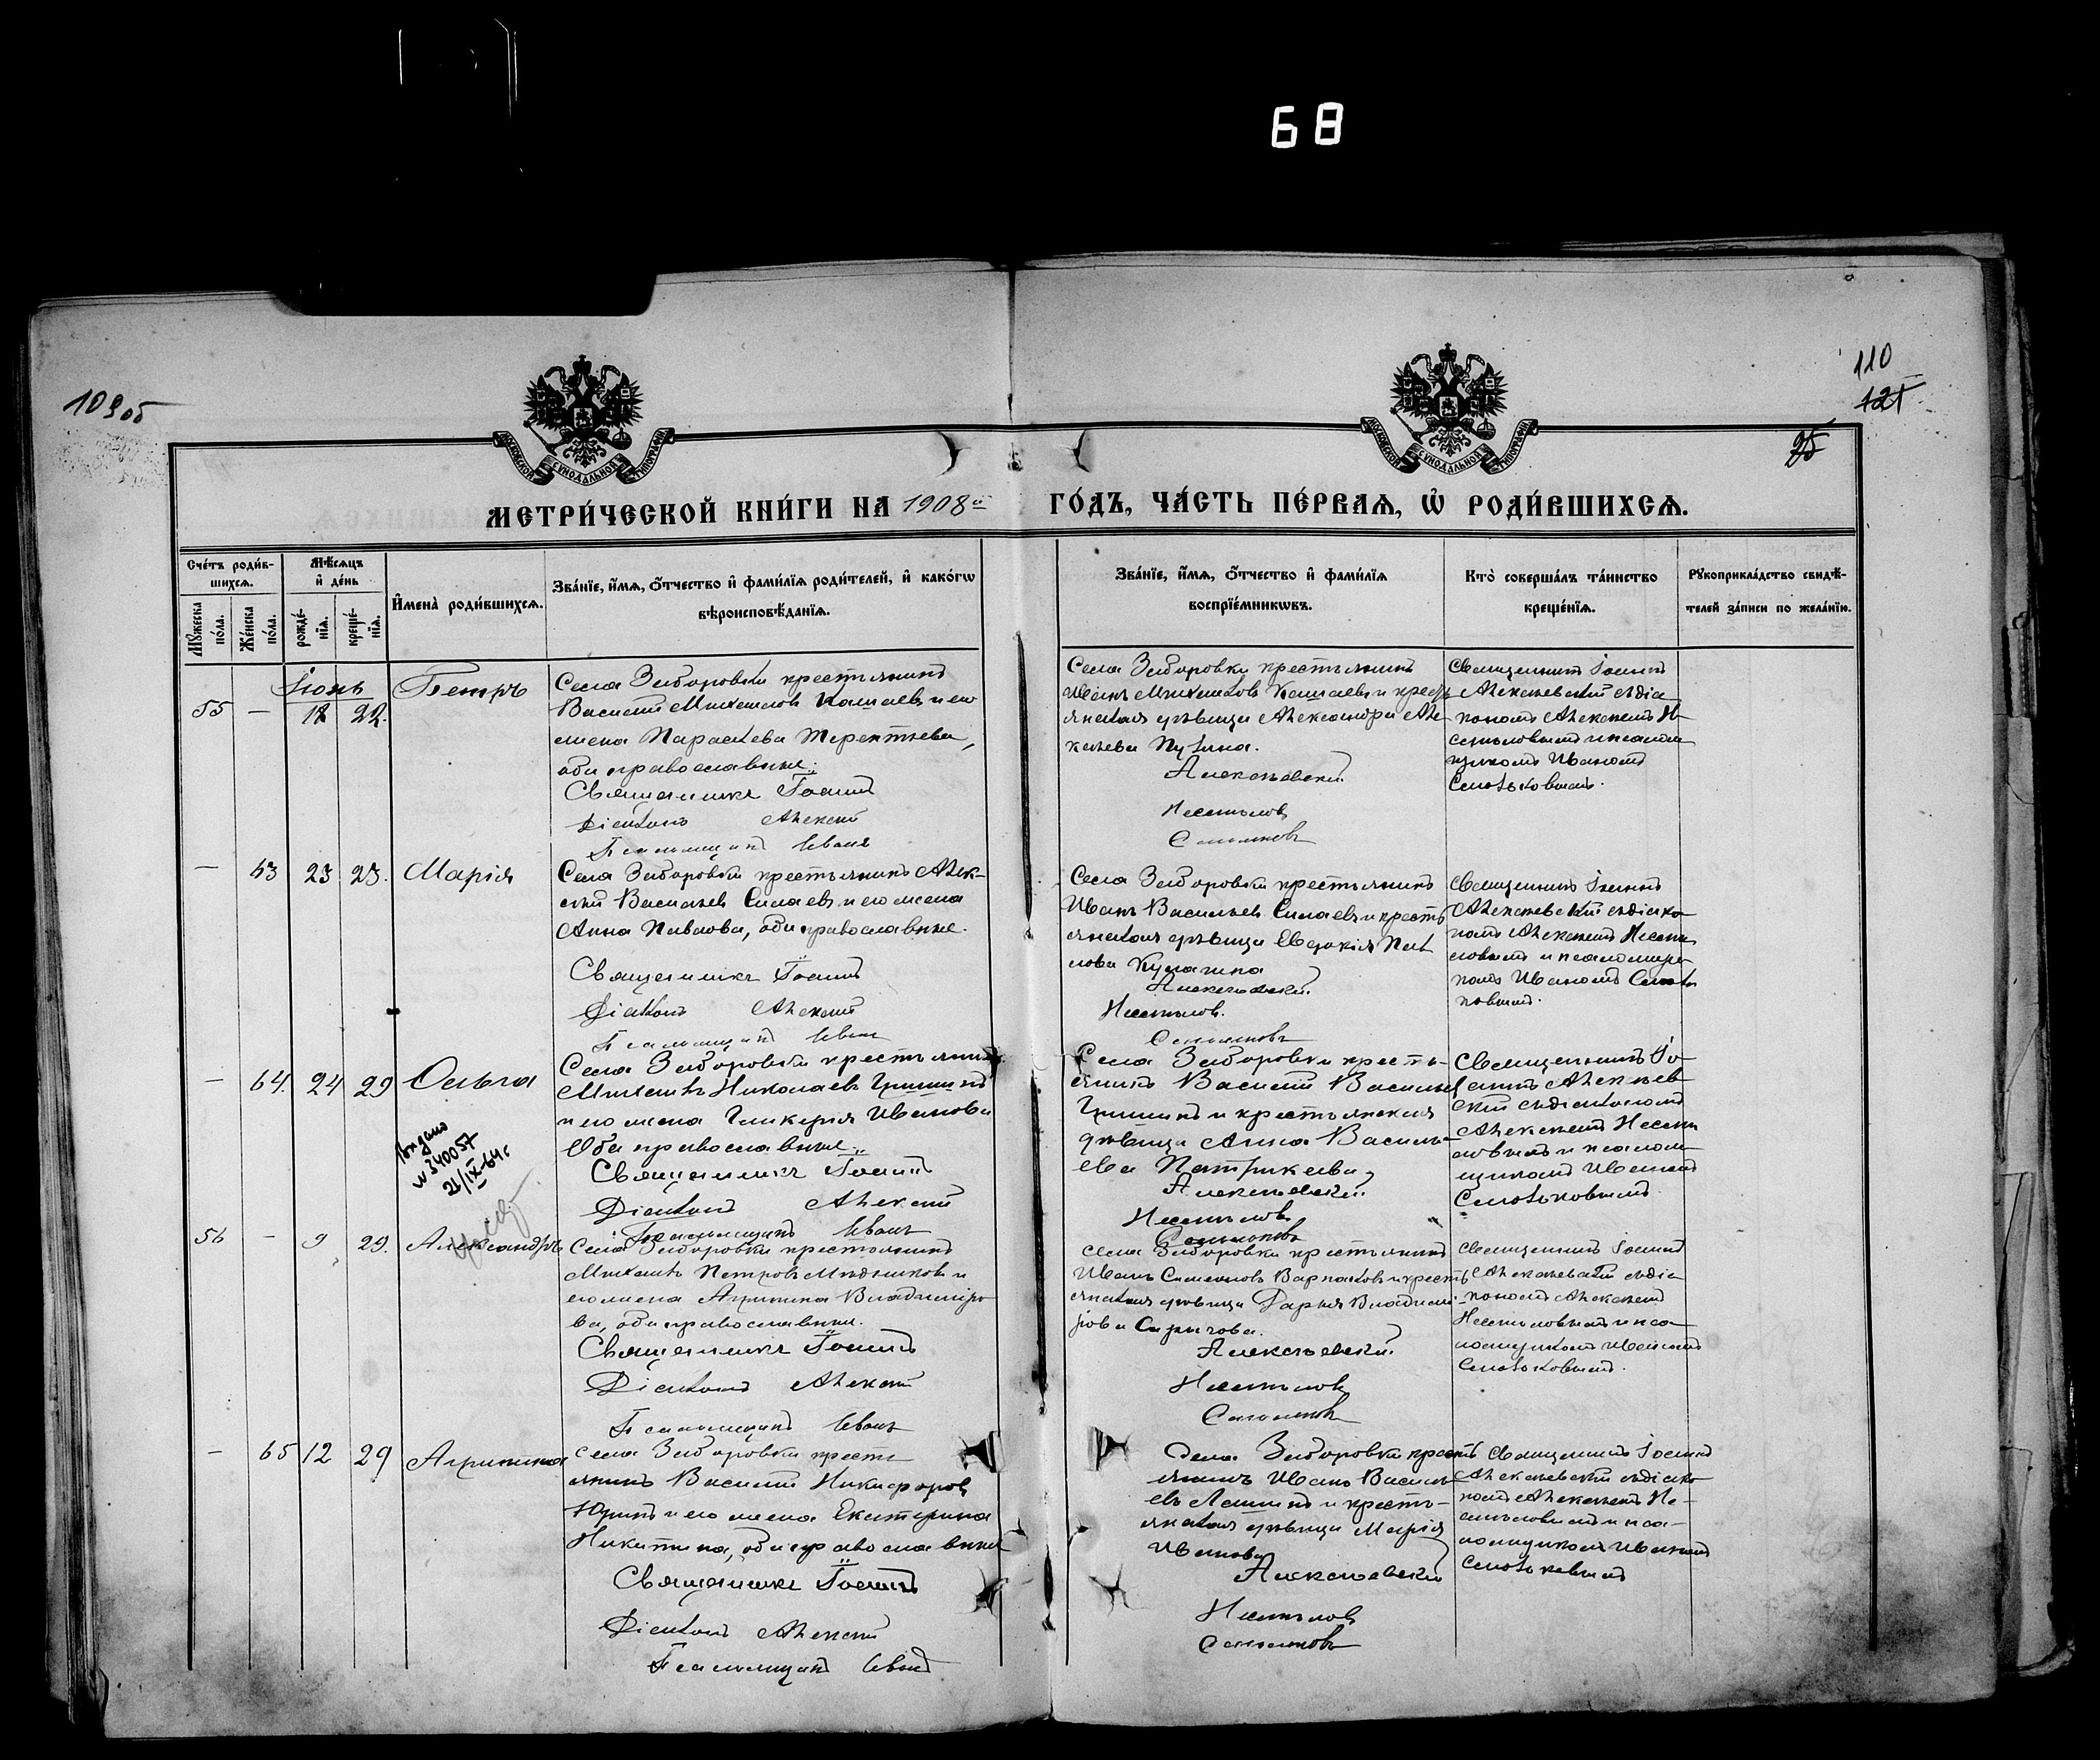 68
109 об
110
121
25
МОСКОВСКОЙ СУНОДАЛЬНОЙ ТИПОГРАФІИ
МОСКОВСКОЙ СУНОДАЛЬНОЙ ТИПОГРАФІИ
МЕТРИ́ЧЕСКОЙ КНИ́ГИ НА 1908й ГО́ДЪ, ЧА́СТЬ ПЕ́РВАѦ, Ѡ҆ РОДИ́ВШИХСѦ.
Сче́тъ роди́в-
шихсѧ.
Мꙋ́жеска по́ла.
Же́нска по́ла.
Мѣ́сѧцъ
и҆ де́нь
рожде́-
нїѧ.
креще́-
нїѧ.
И҆мена̀ роди́вшихсѧ.
Зва́нїе, и҆́мѧ, ѻ҆́тчество и҆ фами́лїѧ роди́телей, и҆ како́гѡ
вѣроисповѣ́данїѧ.
Зва́нїе, и҆́мѧ, ѻ҆́тчество и҆ фами́лїѧ
воспрїе́мникѡвъ.
Кто̀ соверша́лъ та́инство
креще́нїѧ.
Рꙋкоприкла́дство свидѣ́-
телей за́писи по жела́нїю.
Іюнь
55 — 18 22. Петръ
Села Заборовки крестьянинъ
Василій Михайловъ Кашаевъ и его
жена Параскева Терентьева,
оба православные.
Священникъ Іоаннъ
Діаконъ Алексій
Псаломщикъ Иванъ
Села Заборовки крестьянинъ
Иванъ Михайловъ Кашаевъ и кресть
янская дѣвица Александра Але
ксѣева
Алексѣевскій.
Священникъ Іоаннъ
Алексѣевскій съ діа-
кономъ Алексѣемъ
и псалом
щикомъ Иваномъ
— 63 23 23. Марія
Села Заборовки крестьянинъ Алек-
сѣй Васильевъ Силаевъ и его жена
Анна Павлова, оба православные.
Священникъ Іоаннъ
Діаконъ Алексій
Псаломщикъ Иванъ
Села Заборовки крестьянинъ
Иванъ Васильевъ Силаевъ и кресть
янская дѣвица Евдокія Пав
лова Кулагина
Алексѣевскій.
Священникъ Іоаннъ
Алексѣевскій съ діако-
номъ Алексѣемъ
и псаломщи
комъ Иваномъ
— 64. 24 29 Ольга
Выдано
№ 340057
21/IX-64г
Села Заборовки крестьянинъ
Михаилъ Николаевъ Гришинъ
и его жена Гликерія Иванова
Оба православные.
Священникъ Іоаннъ
Діаконъ Алексій
Псаломщикъ Иванъ
Села Заборовки кресть-
янинъ Василій Васильевъ
Гришинъ и крестьянская
дѣвица Анна Василь-
ева Патрикеева
Алексѣевскій.
Священникъ Іо-
аннъ Алексѣев-
скій съ діакономъ
Алексѣемъ
и псалом
щикомъ Иваномъ
56 — 9 29. Александръ
Села Заборовки крестьянинъ
Михаилъ Петровъ Мѣдниковъ и
его жена Агрипина Владиміро
ва, оба православные.
Священникъ Іоаннъ
Діаконъ Алексій
Псаломщикъ Иванъ
Села Заборовки крестьянинъ
Иванъ Симеоновъ и кресть
янская дѣвица Дарья Владими-
рова
Алексѣевскій.
Священникъ Іоаннъ
Алексѣевскій съ діа-
кономъ Алексѣемъ
и пса-
ломщикомъ Иваномъ
— 65 12 29 Агрипина
Села Заборовки кресть
янинъ Василій Никифоровъ
Юдинъ и его жена Екатерина
Никитина, оба православные
Священникъ Іоаннъ
Діаконъ Алексій
Псаломщикъ Иванъ
Села Заборовки кресть
янинъ Иванъ Василь-
евъ и кресть-
янская дѣвица Марія
Иванова
Алексѣевскій
Священникъ Іоаннъ
Алексѣевскій съ діако-
номъ Алексѣемъ
и пса-
ломщикомъ Иваномъ